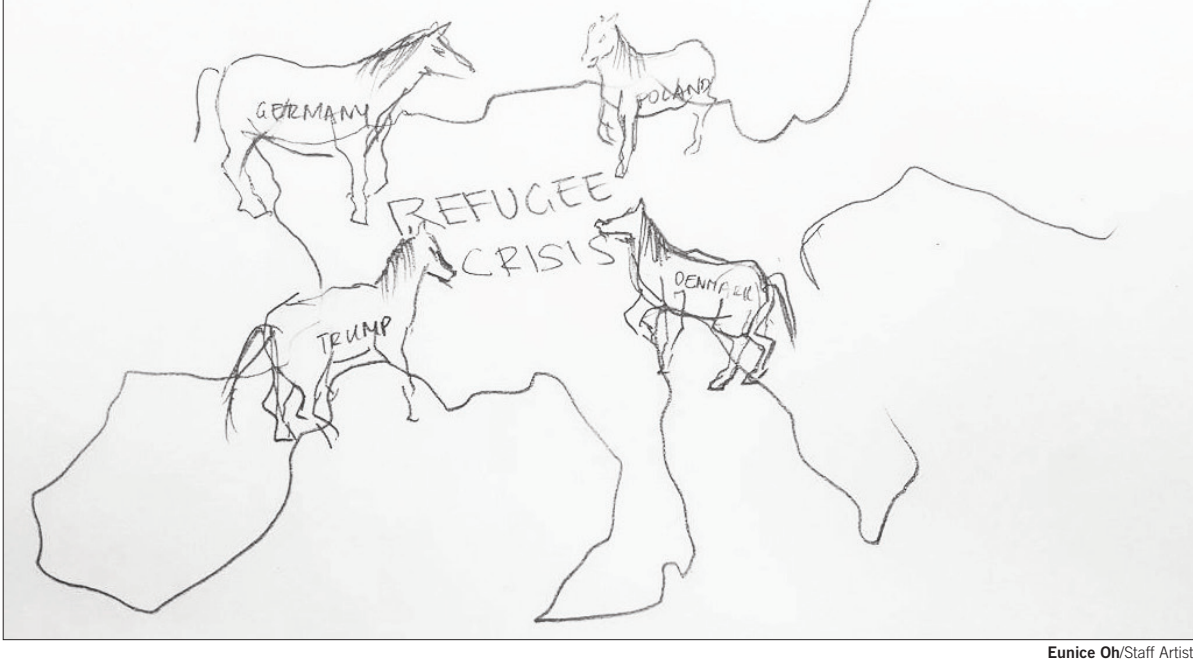 GERMANY
POLAND
REFUGEE
CRISIS
DENMARK
TRUMP
Eunice Oh/Staff Artist